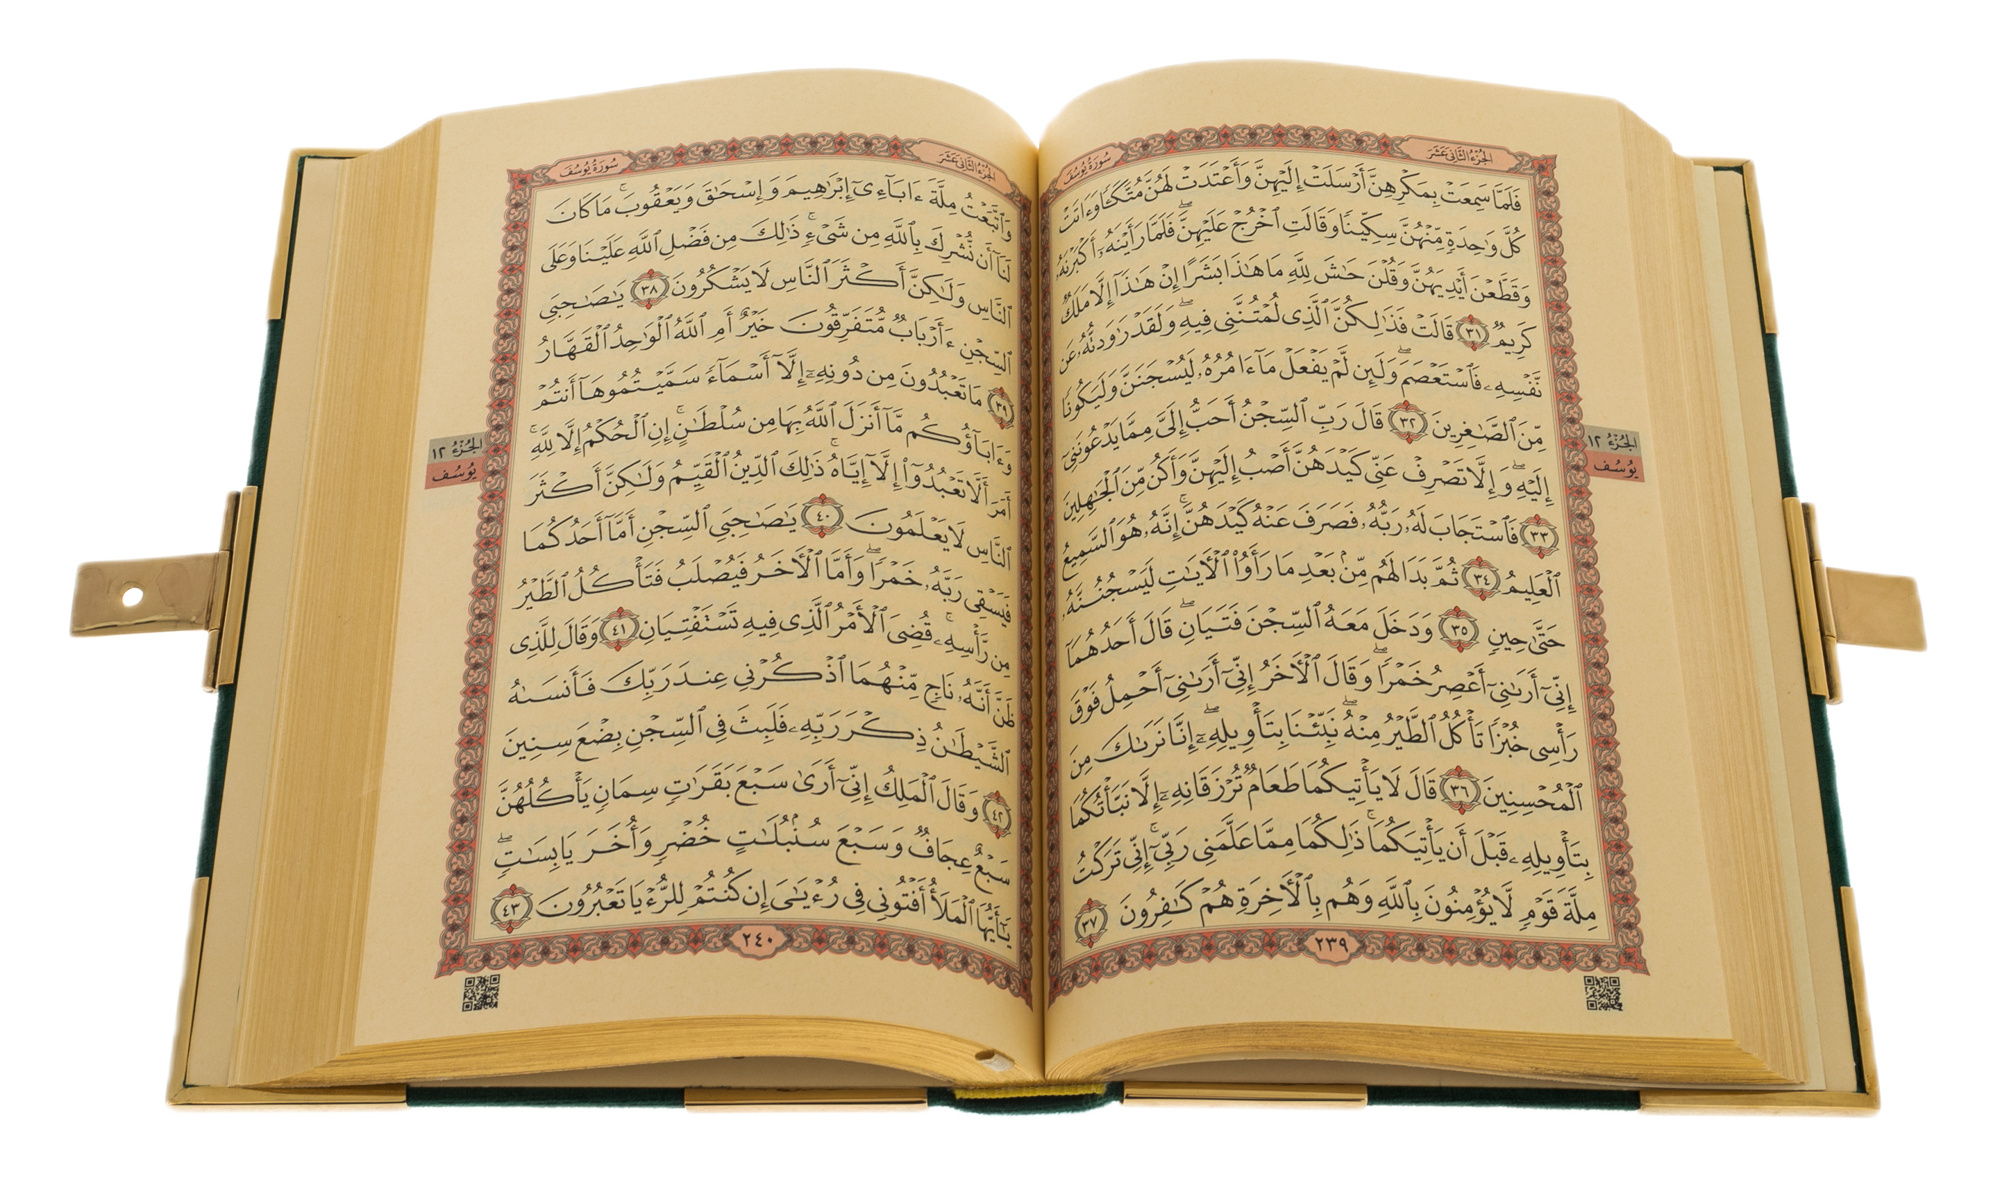 الجزء الثاني عشر
سورة يوسف
فَلَمَّا سَمِعَتْ بِمَكْرِهِنَّ أَرْسَلَتْ إِلَيْهِنَّ وَأَعْتَدَتْ لَهُنَّ مُتَّكَـًٔا وَءَاتَتْ
كُلَّ وَٰحِدَةٍ مِّنْهُنَّ سِكِّينًا وَقَالَتِ ٱخْرُجْ عَلَيْهِنَّ ۖ فَلَمَّا رَأَيْنَهُۥٓ أَكْبَرْنَهُۥ
وَقَطَّعْنَ أَيْدِيَهُنَّ وَقُلْنَ حَـٰشَ لِلَّهِ مَا هَـٰذَا بَشَرًا إِنْ هَـٰذَآ إِلَّا مَلَكٌ
كَرِيمٌ ٣١ قَالَتْ فَذَٰلِكُنَّ ٱلَّذِى لُمْتُنَّنِى فِيهِ ۖ وَلَقَدْ رَٰوَدتُّهُۥ عَن
نَّفْسِهِۦ فَٱسْتَعْصَمَ ۖ وَلَئِن لَّمْ يَفْعَلْ مَآ ءَامُرُهُۥ لَيُسْجَنَنَّ وَلَيَكُونًا
مِّنَ ٱلصَّـٰغِرِينَ ٣٢ قَالَ رَبِّ ٱلسِّجْنُ أَحَبُّ إِلَىَّ مِمَّا يَدْعُونَنِىٓ
إِلَيْهِ ۖ وَإِلَّا تَصْرِفْ عَنِّى كَيْدَهُنَّ أَصْبُ إِلَيْهِنَّ وَأَكُن مِّنَ ٱلْجَـٰهِلِينَ
٣٣ فَٱسْتَجَابَ لَهُۥ رَبُّهُۥ فَصَرَفَ عَنْهُ كَيْدَهُنَّ ۚ إِنَّهُۥ هُوَ ٱلسَّمِيعُ
ٱلْعَلِيمُ ٣٤ ثُمَّ بَدَا لَهُم مِّنۢ بَعْدِ مَا رَأَوُا۟ ٱلْـَٔايَـٰتِ لَيَسْجُنُنَّهُۥ
حَتَّىٰ حِينٍ ٣٥ وَدَخَلَ مَعَهُ ٱلسِّجْنَ فَتَيَانِ ۖ قَالَ أَحَدُهُمَآ
إِنِّىٓ أَرَىٰنِىٓ أَعْصِرُ خَمْرًا ۖ وَقَالَ ٱلْـَٔاخَرُ إِنِّىٓ أَرَىٰنِىٓ أَحْمِلُ فَوْقَ
رَأْسِى خُبْزًا تَأْكُلُ ٱلطَّيْرُ مِنْهُ ۖ نَبِّئْنَا بِتَأْوِيلِهِۦٓ ۖ إِنَّا نَرَىٰكَ مِنَ
ٱلْمُحْسِنِينَ ٣٦ قَالَ لَا يَأْتِيكُمَا طَعَامٌ تُرْزَقَانِهِۦٓ إِلَّا نَبَّأْتُكُمَا
بِتَأْوِيلِهِۦ قَبْلَ أَن يَأْتِيَكُمَا ۚ ذَٰلِكُمَا مِمَّا عَلَّمَنِى رَبِّىٓ ۚ إِنِّى تَرَكْتُ
مِلَّةَ قَوْمٍ لَّا يُؤْمِنُونَ بِٱللَّهِ وَهُم بِٱلْـَٔاخِرَةِ هُمْ كَـٰفِرُونَ ٣٧
٢٣٩
الجزء ١٢
يوسف
الجزء الثاني عشر
سورة يوسف
وَٱتَّبَعْتُ مِلَّةَ ءَابَآءِىٓ إِبْرَٰهِيمَ وَإِسْحَـٰقَ وَيَعْقُوبَ ۚ مَا كَانَ
لَنَآ أَن نُّشْرِكَ بِٱللَّهِ مِن شَىْءٍ ۚ ذَٰلِكَ مِن فَضْلِ ٱللَّهِ عَلَيْنَا وَعَلَى
ٱلنَّاسِ وَلَـٰكِنَّ أَكْثَرَ ٱلنَّاسِ لَا يَشْكُرُونَ ٣٨ يَـٰصَـٰحِبَىِ
ٱلسِّجْنِ ءَأَرْبَابٌ مُّتَفَرِّقُونَ خَيْرٌ أَمِ ٱللَّهُ ٱلْوَٰحِدُ ٱلْقَهَّارُ
٣٩ مَا تَعْبُدُونَ مِن دُونِهِۦٓ إِلَّآ أَسْمَآءً سَمَّيْتُمُوهَآ أَنتُمْ
وَءَابَآؤُكُم مَّآ أَنزَلَ ٱللَّهُ بِهَا مِن سُلْطَـٰنٍ ۚ إِنِ ٱلْحُكْمُ إِلَّا لِلَّهِ ۚ
أَمَرَ أَلَّا تَعْبُدُوٓا۟ إِلَّآ إِيَّاهُ ۚ ذَٰلِكَ ٱلدِّينُ ٱلْقَيِّمُ وَلَـٰكِنَّ أَكْثَرَ
ٱلنَّاسِ لَا يَعْلَمُونَ ٤٠ يَـٰصَـٰحِبَىِ ٱلسِّجْنِ أَمَّآ أَحَدُكُمَا
فَيَسْقِى رَبَّهُۥ خَمْرًا ۖ وَأَمَّا ٱلْـَٔاخَرُ فَيُصْلَبُ فَتَأْكُلُ ٱلطَّيْرُ
مِن رَّأْسِهِۦ ۚ قُضِىَ ٱلْأَمْرُ ٱلَّذِى فِيهِ تَسْتَفْتِيَانِ ٤١ وَقَالَ لِلَّذِى
ظَنَّ أَنَّهُۥ نَاجٍ مِّنْهُمَا ٱذْكُرْنِى عِندَ رَبِّكَ فَأَنسَىٰهُ
ٱلشَّيْطَـٰنُ ذِكْرَ رَبِّهِۦ فَلَبِثَ فِى ٱلسِّجْنِ بِضْعَ سِنِينَ
٤٢ وَقَالَ ٱلْمَلِكُ إِنِّىٓ أَرَىٰ سَبْعَ بَقَرَٰتٍ سِمَانٍ يَأْكُلُهُنَّ
سَبْعٌ عِجَافٌ وَسَبْعَ سُنۢبُلَـٰتٍ خُضْرٍ وَأُخَرَ يَابِسَـٰتٍ ۖ
يَـٰٓأَيُّهَا ٱلْمَلَأُ أَفْتُونِى فِى رُءْيَـٰىَ إِن كُنتُمْ لِلرُّءْيَا تَعْبُرُونَ ٤٣
٢٤٠
الجزء ١٢
يوسف